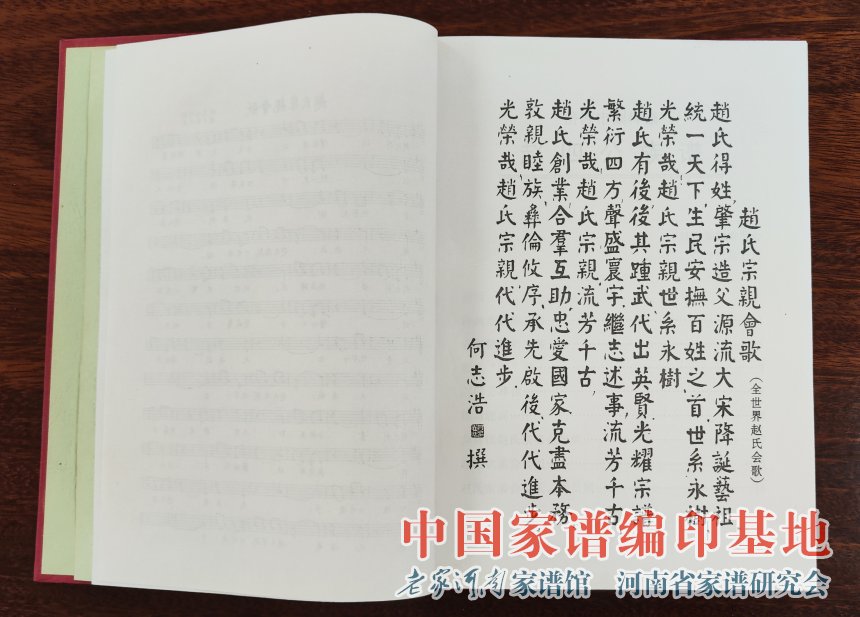 趙氏宗親會歌(全世界赵氏会歌)
趙氏得姓,肇宗造父源流大宋降誕藝祖
統一天下,生民安撫百姓之首,世系永樹,
光榮哉,趙氏宗親世系永樹,
趙氏有後後其踵武代出英賢光耀宗譜
繁衍四方聲盛寰宇,繼志述事,流芳千古
光榮哉,趙氏宗親,流芳千古,
趙氏創業,合羣互助,忠愛國家克盡本務
敦親睦族,彝倫攸序,承先啟後,代代進步
光榮哉,趙氏宗親代代進步,
何志浩 撰
中国家谱编印基地
老家河南家谱馆 河南省家谱研究会